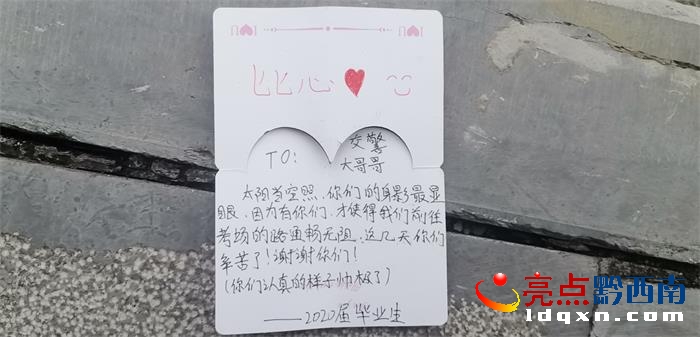 比心
TO: 交警
大哥哥
太阳当空照,你们的身影最显
眼,因为有你们,才使得我们前往
考场的路通畅无阻,这几天你们
辛苦了!谢谢你们!
(你们认真的样子帅极了)
——2020届毕业生
亮点黔西南
ldqxn.com